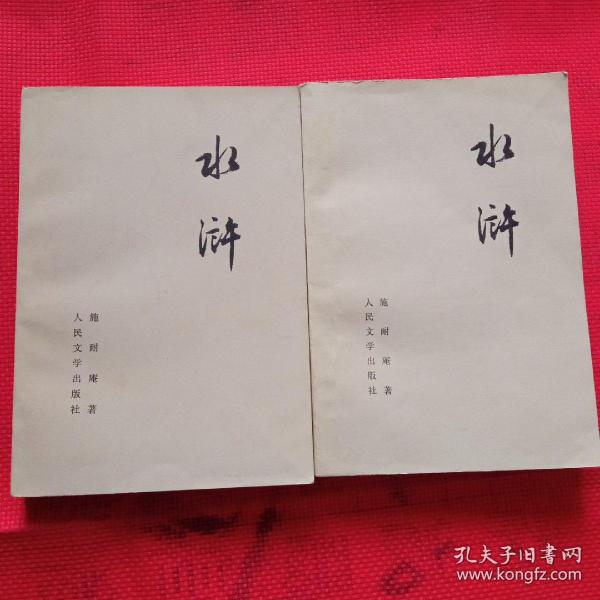 水浒
施耐庵著
人民文学出版社
水浒
施耐庵著
人民文学出版社
孔夫子旧书网
www.kongfz.com